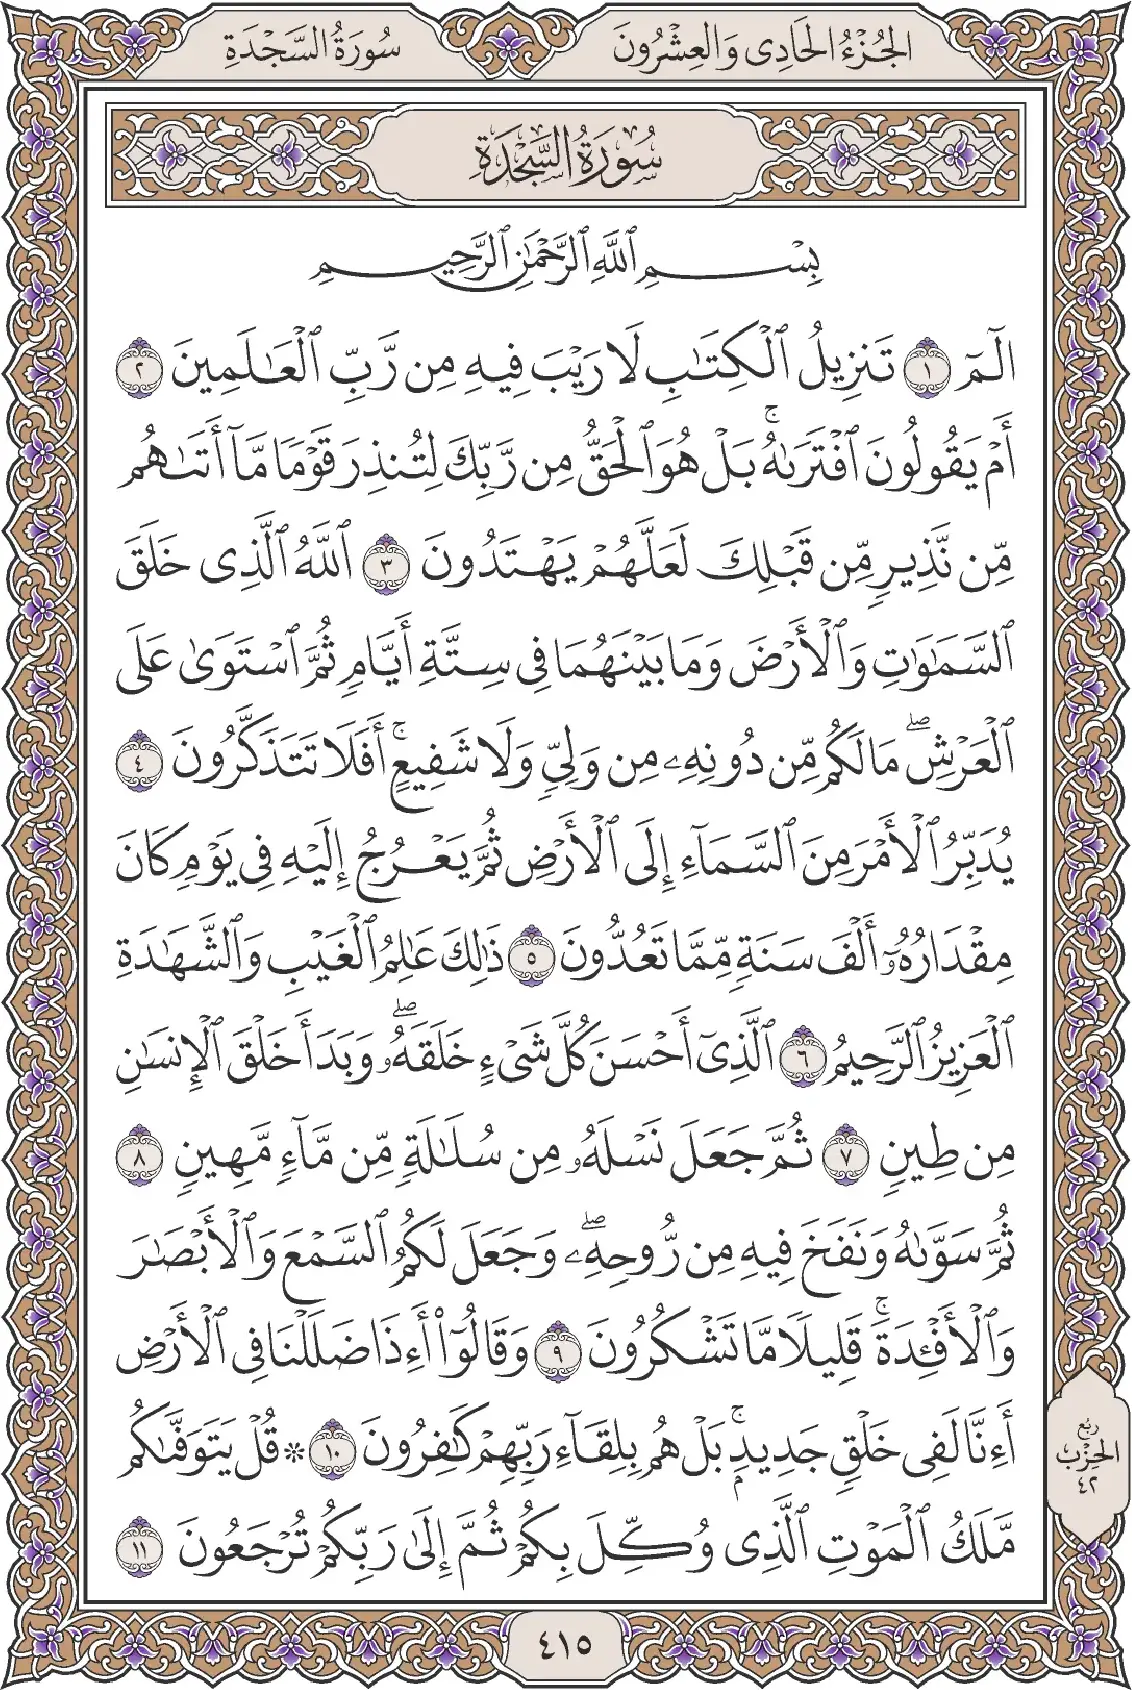 الجُزْءُ الحَادِى وَالعِشْرُونَ
سُورَةُ السَّجْدَةِ
سُورَةُ السَّجْدَةِ
بِسْمِ ٱللَّهِ ٱلرَّحْمَٰنِ ٱلرَّحِيمِ
الٓمٓ ١ تَنزِيلُ ٱلْكِتَٰبِ لَا رَيْبَ فِيهِ مِن رَّبِّ ٱلْعَٰلَمِينَ ٢
أَمْ يَقُولُونَ ٱفْتَرَىٰهُۚ بَلْ هُوَ ٱلْحَقُّ مِن رَّبِّكَ لِتُنذِرَ قَوْمًا مَّآ أَتَىٰهُم
مِّن نَّذِيرٍ مِّن قَبْلِكَ لَعَلَّهُمْ يَهْتَدُونَ ٣ ٱللَّهُ ٱلَّذِى خَلَقَ
ٱلسَّمَٰوَٰتِ وَٱلْأَرْضَ وَمَا بَيْنَهُمَا فِى سِتَّةِ أَيَّامٍ ثُمَّ ٱسْتَوَىٰ عَلَى
ٱلْعَرْشِۖ مَا لَكُم مِّن دُونِهِۦ مِن وَلِىٍّ وَلَا شَفِيعٍۚ أَفَلَا تَتَذَكَّرُونَ ٤
يُدَبِّرُ ٱلْأَمْرَ مِنَ ٱلسَّمَآءِ إِلَى ٱلْأَرْضِ ثُمَّ يَعْرُجُ إِلَيْهِ فِى يَوْمٍ كَانَ
مِقْدَارُهُۥٓ أَلْفَ سَنَةٍ مِّمَّا تَعُدُّونَ ٥ ذَٰلِكَ عَٰلِمُ ٱلْغَيْبِ وَٱلشَّهَٰدَةِ
ٱلْعَزِيزُ ٱلرَّحِيمُ ٦ ٱلَّذِىٓ أَحْسَنَ كُلَّ شَىْءٍ خَلَقَهُۥۖ وَبَدَأَ خَلْقَ ٱلْإِنسَٰنِ
مِن طِينٍ ٧ ثُمَّ جَعَلَ نَسْلَهُۥ مِن سُلَٰلَةٍ مِّن مَّآءٍ مَّهِينٍ ٨
ثُمَّ سَوَّىٰهُ وَنَفَخَ فِيهِ مِن رُّوحِهِۦۖ وَجَعَلَ لَكُمُ ٱلسَّمْعَ وَٱلْأَبْصَٰرَ
وَٱلْأَفْـِٔدَةَۚ قَلِيلًا مَّا تَشْكُرُونَ ٩ وَقَالُوٓا۟ أَءِذَا ضَلَلْنَا فِى ٱلْأَرْضِ
أَءِنَّا لَفِى خَلْقٍ جَدِيدٍۭۚ بَلْ هُم بِلِقَآءِ رَبِّهِمْ كَٰفِرُونَ ١٠ * قُلْ يَتَوَفَّىٰكُم
مَّلَكُ ٱلْمَوْتِ ٱلَّذِى وُكِّلَ بِكُمْ ثُمَّ إِلَىٰ رَبِّكُمْ تُرْجَعُونَ ١١
رُبْعُ
الحِزْبِ
٤٢
٤١٥